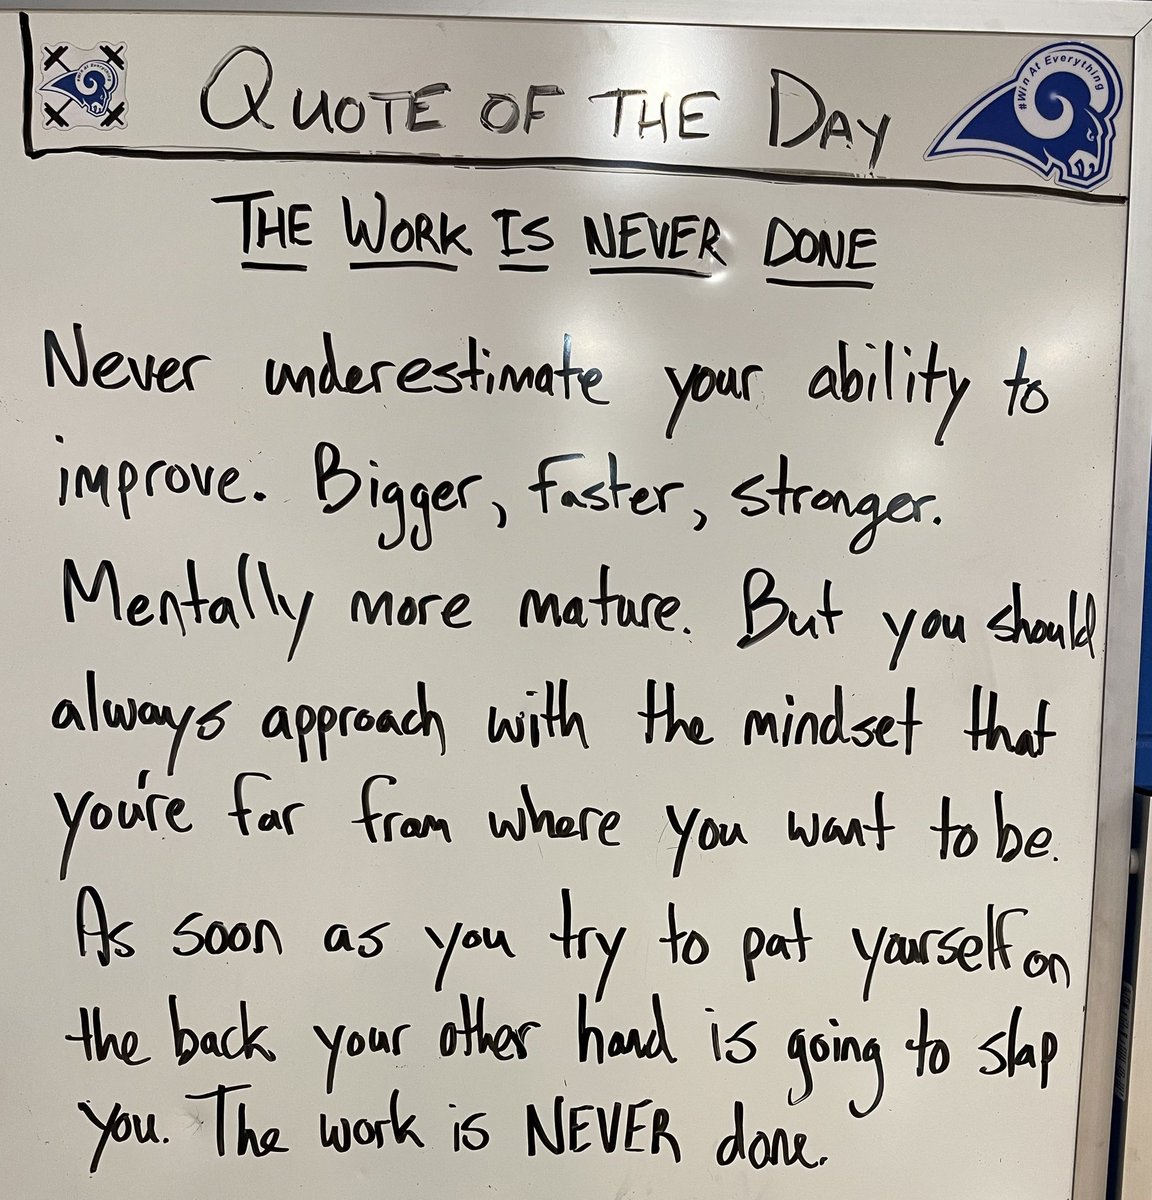 QUOTE OF THE DAY
#Win At Everything
THE WORK IS NEVER DONE
Never underestimate your ability to
improve. Bigger, faster, stronger.
Mentally more mature. But you should
always approach with the mindset that
you're far from where you want to be.
As soon as you try to pat yourself on
the back your other hand is going to slap
you. The work is NEVER done.